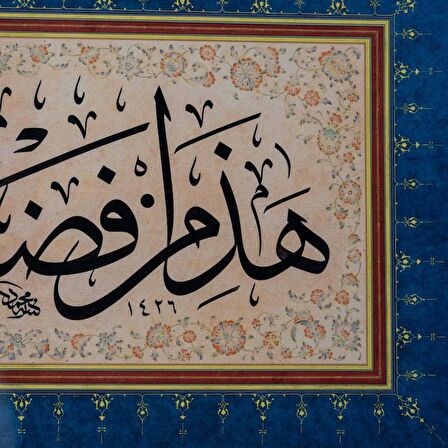 هَذَا مِنْ فَضْ
١٤٢٦